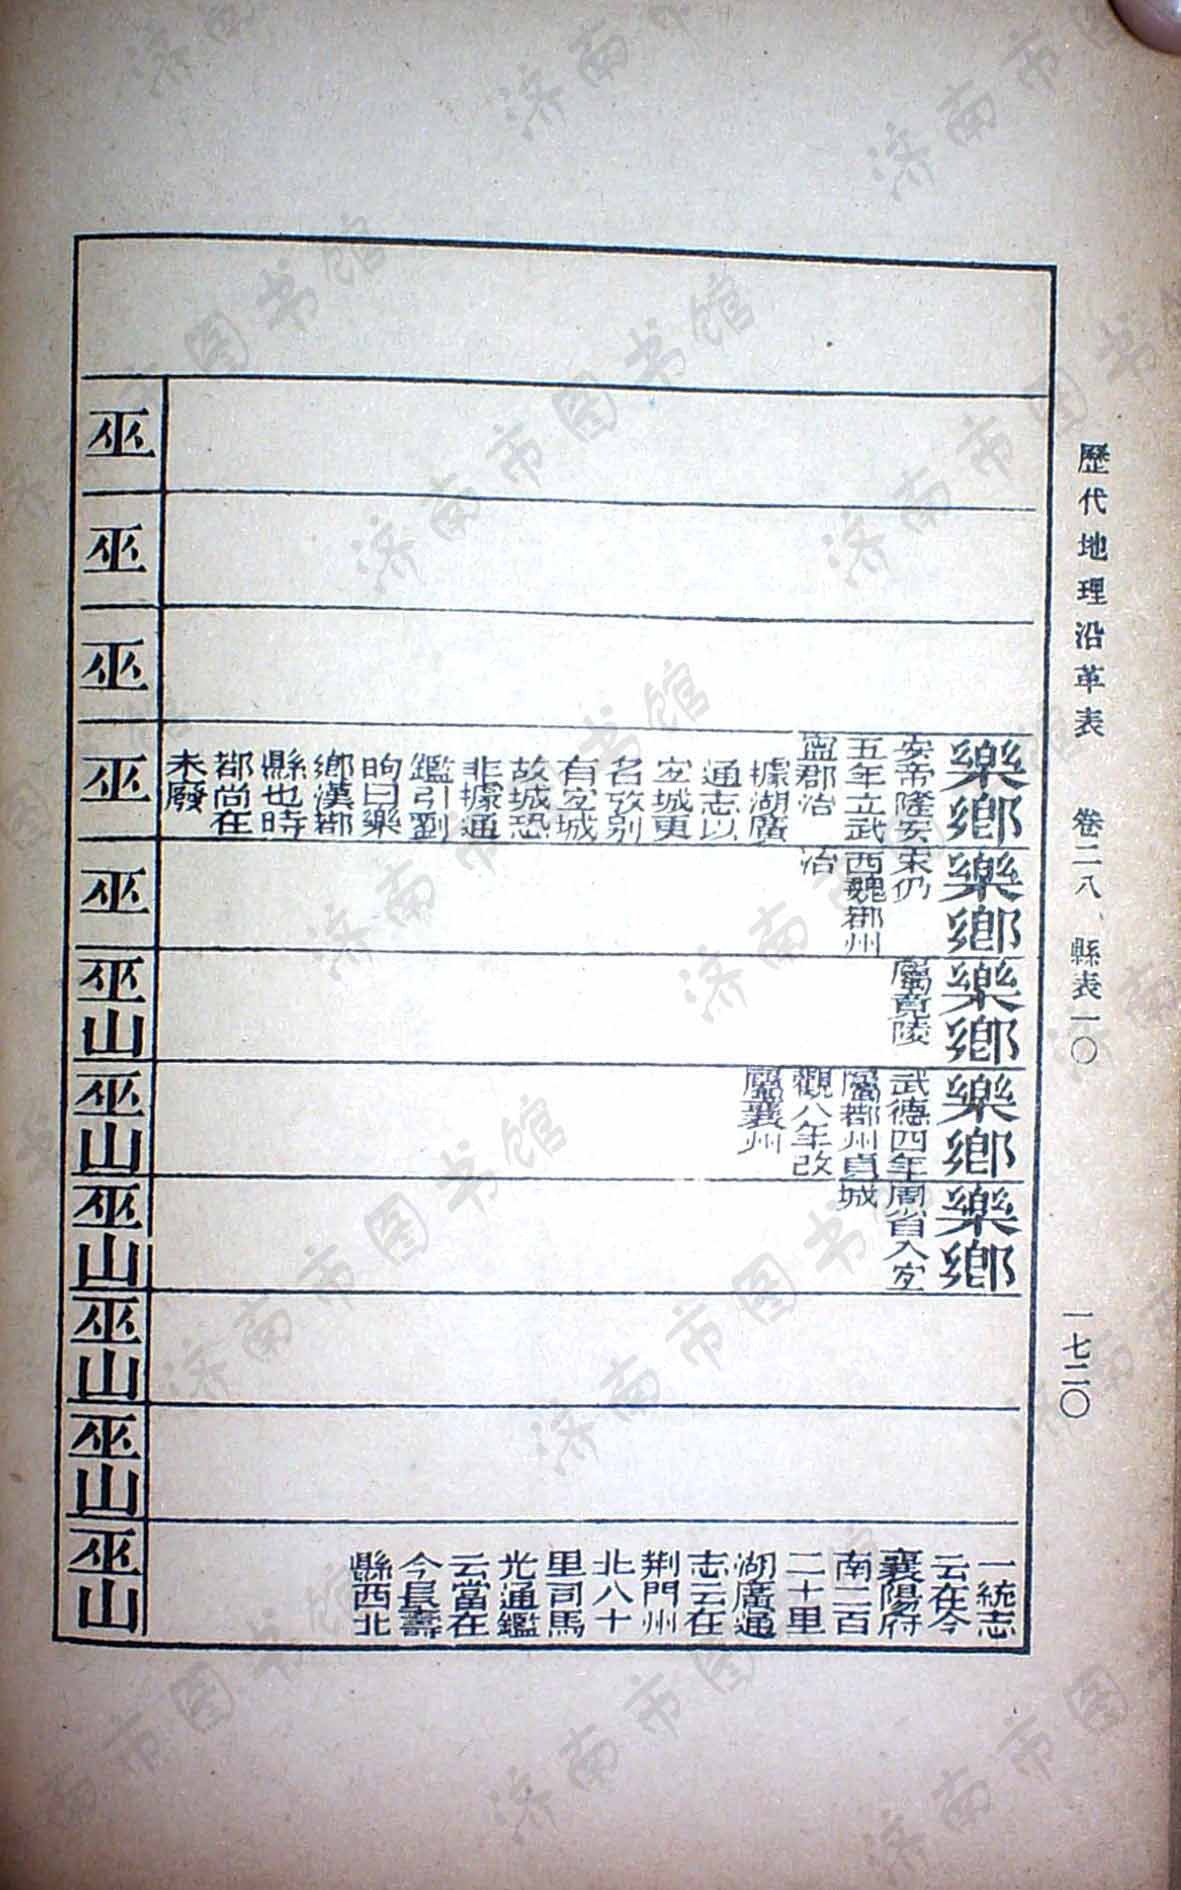 歷代地理沿革表 卷二八 縣表一〇 一七二〇
樂鄉
安帝隆安
五年立武
寧郡治
據湖廣
通志以
宜城更
名攷別
有宜城
故城恐
非據通
鑑引劉
昫曰樂
鄉漢鄀
縣也時
鄀尚在
未廢
樂鄉
宋仍
西魏鄀州
治
樂鄉
屬竟陵
樂鄉
武德四年
屬鄀州貞
觀八年改
屬襄州
樂鄉
周省入宜
城
一統志
云在今
襄陽府
南二百
二十里
湖廣通
志云在
荆門州
北八十
里司馬
光通鑑
云當在
今長壽
縣西北
巫
巫
巫
巫
巫
巫山
巫山
巫山
巫山
巫山
巫山
济南市图书馆